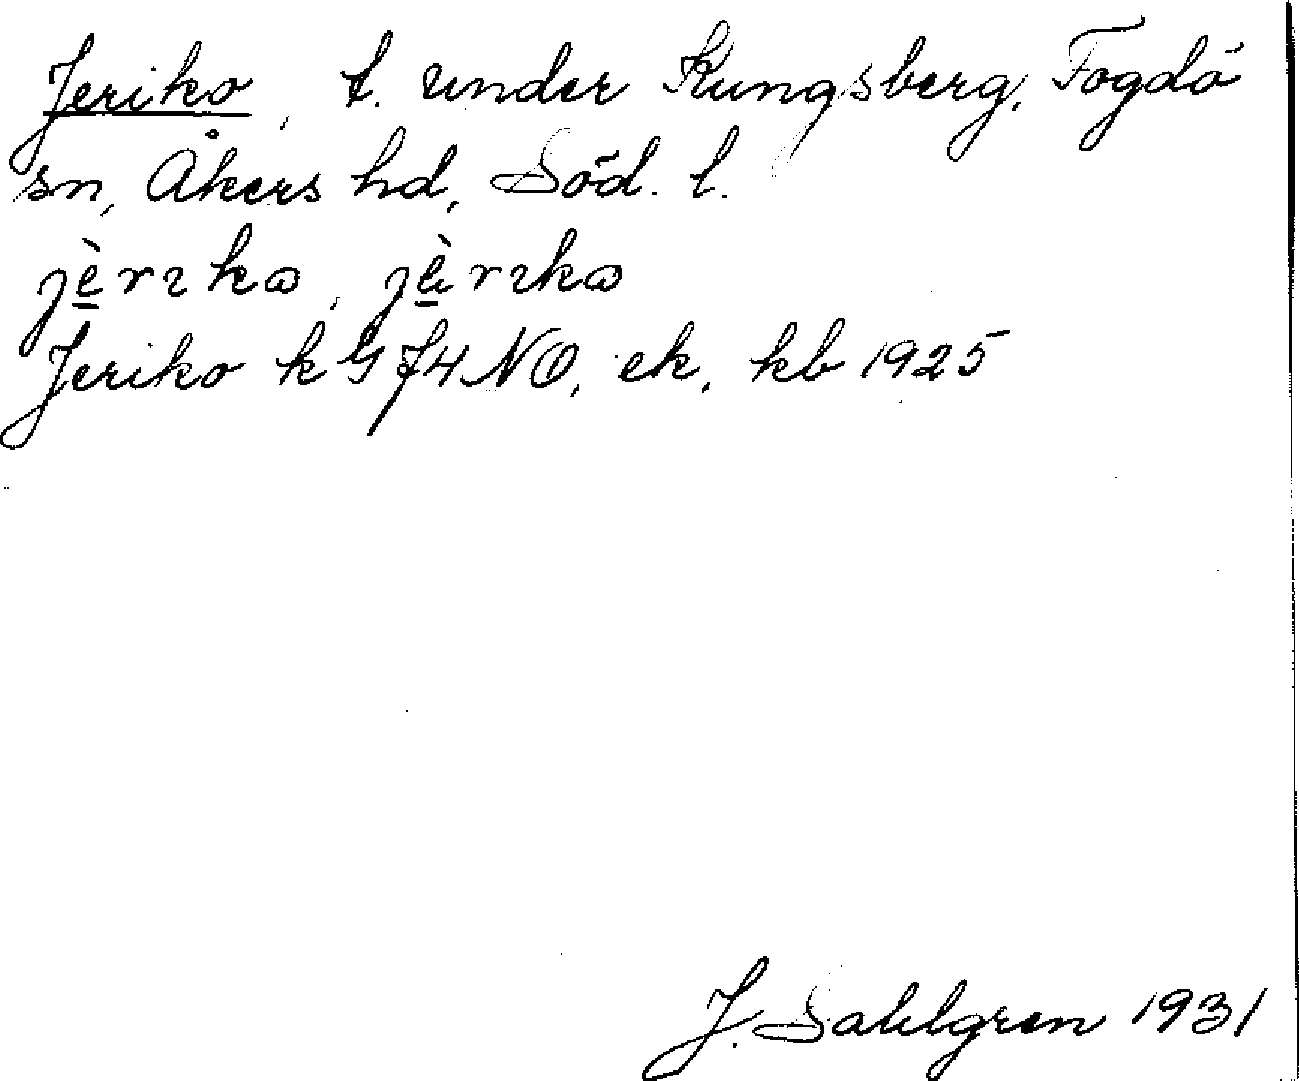 Jeriko, t. under Kungsberg, Fogdö
sn, Åkers hd, Söd. l.
jè̱rıkω, jè̱rıkω
Jeriko k G J4 NO, ek, kb 1925
J. Sahlgren 1931